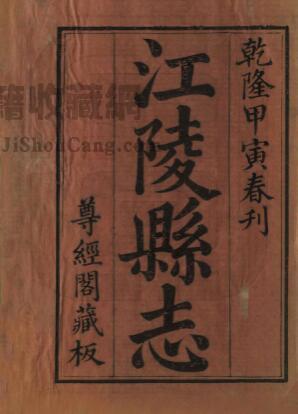 乾隆甲寅春刊
江陵縣志
尊經閣藏板
籍收藏網
JiShouCang.com